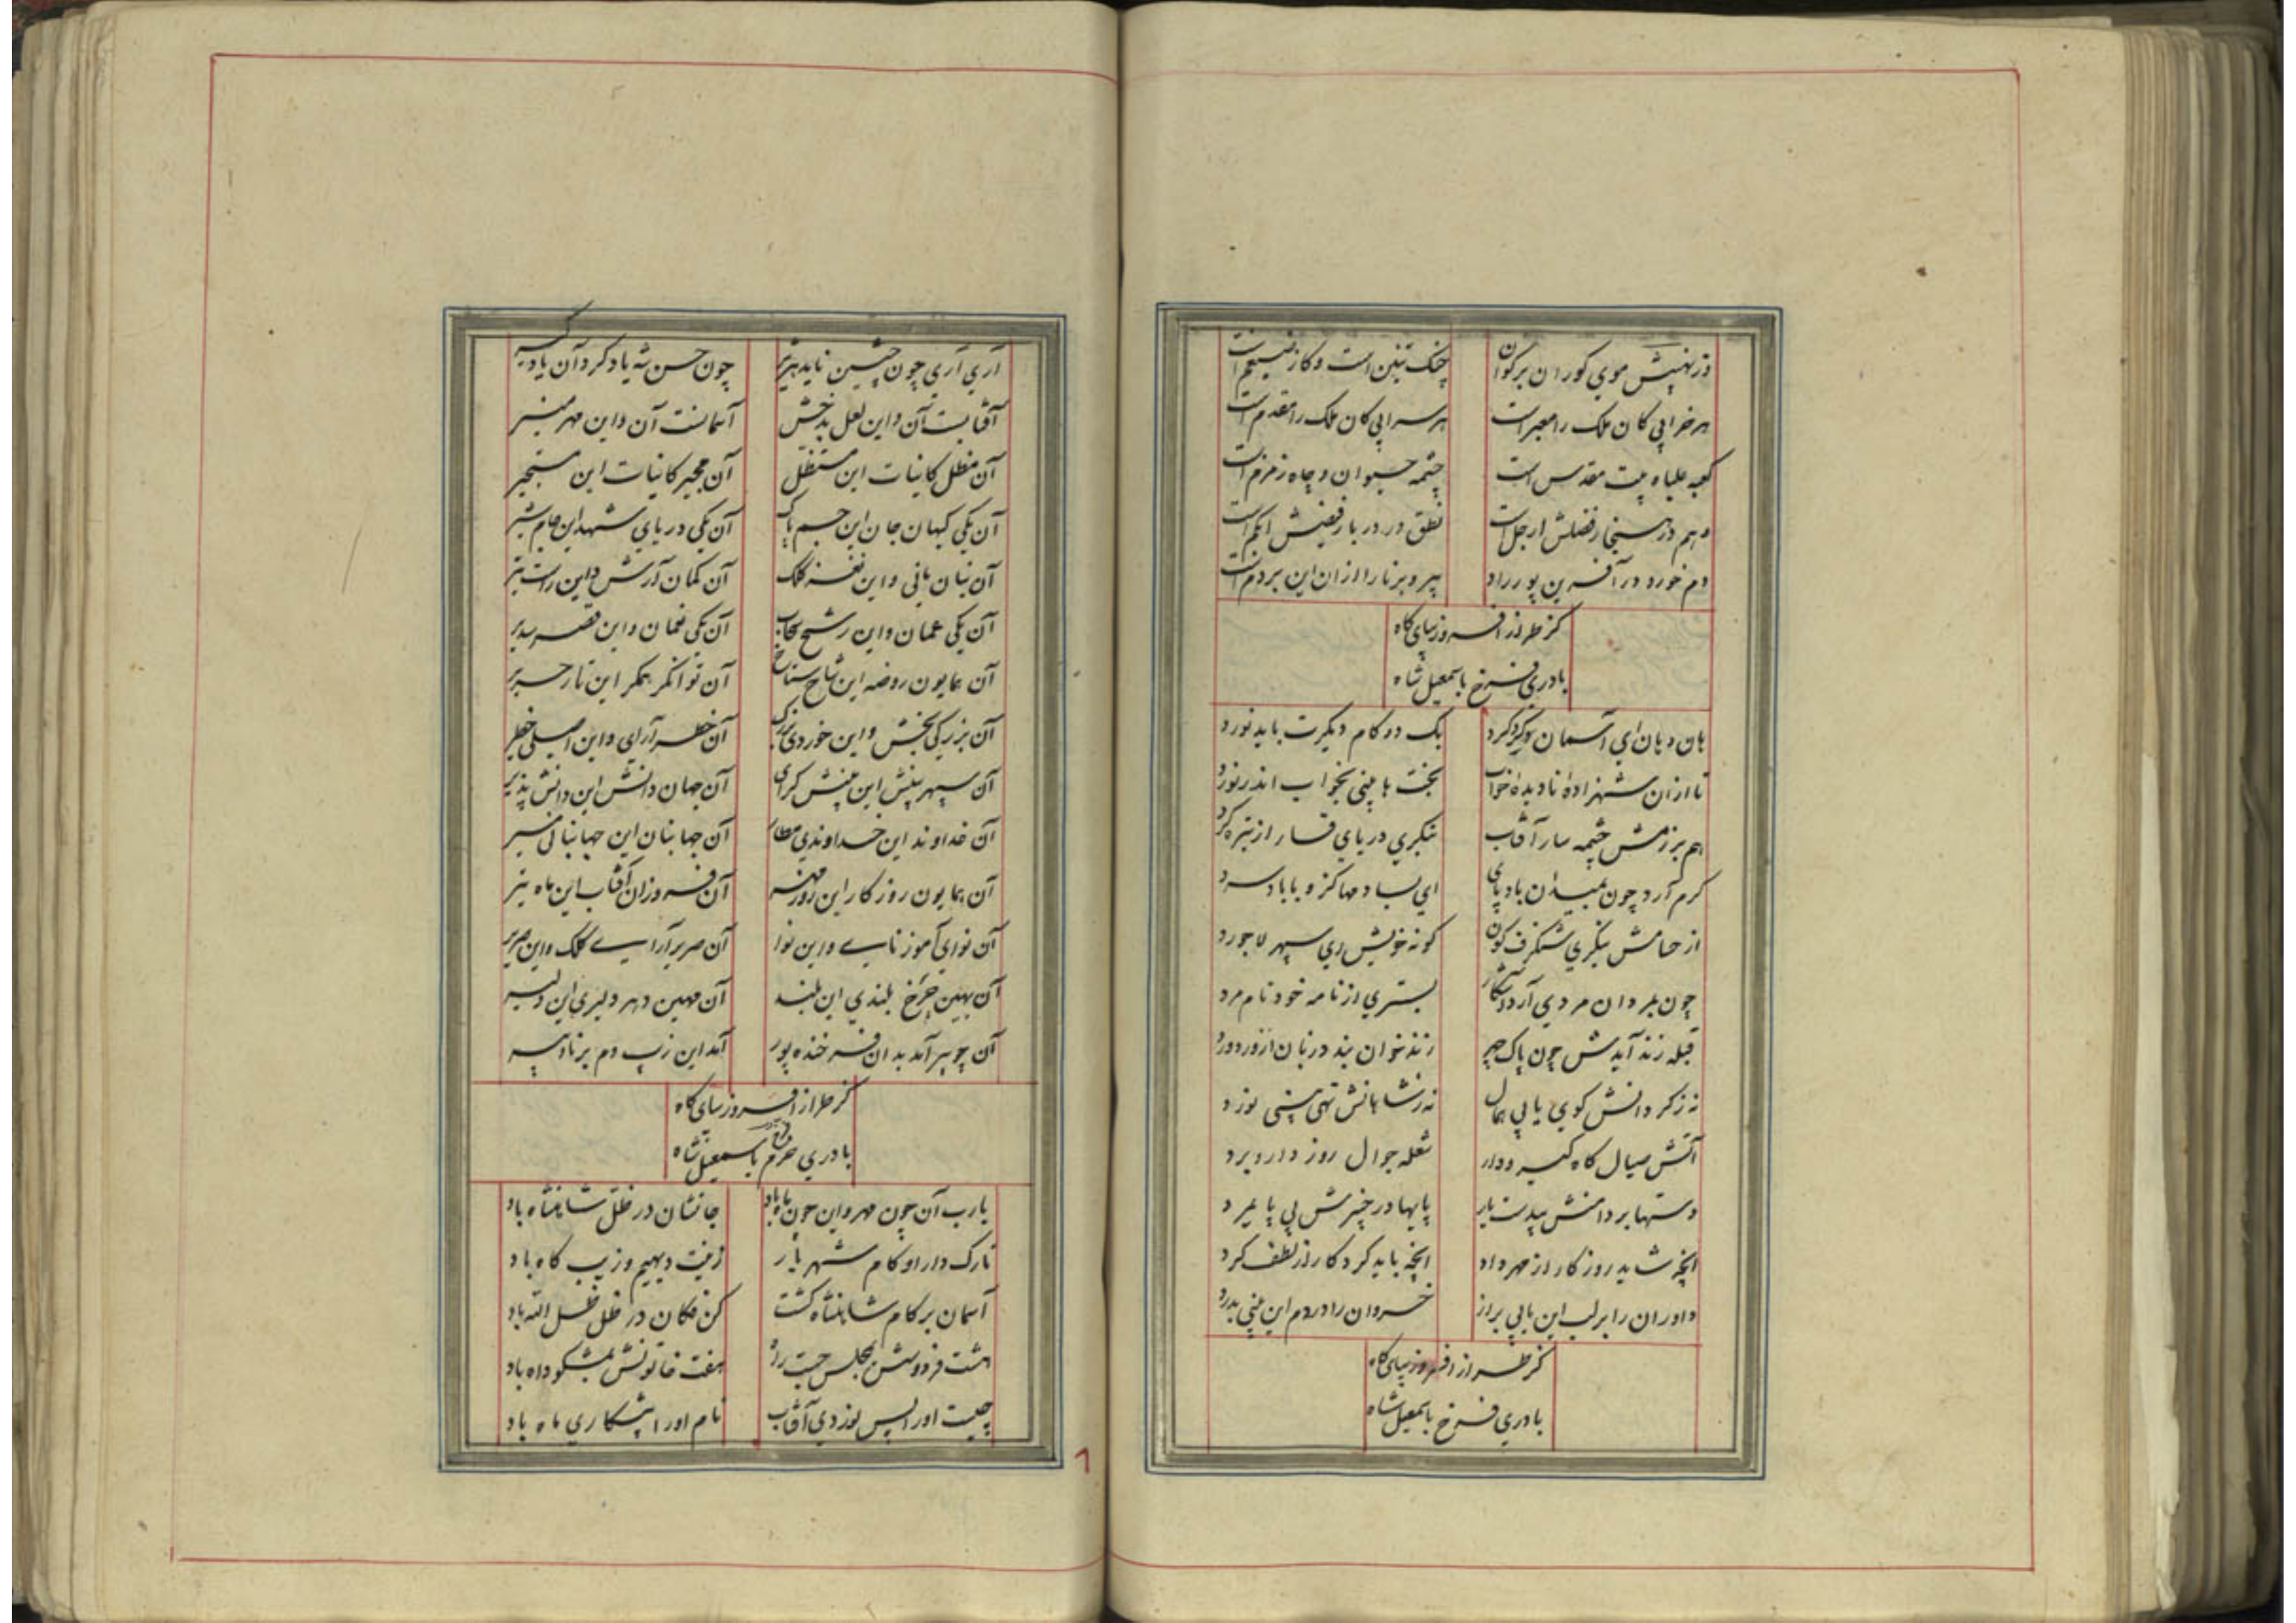 در نهیبش موی کوران بر کوان چنک تنین است و کاز ضیغم است
هر خرابی کان ملک را معبر است هر سرابی کان ملک را مقدم است
کعبه علیاه بیت مقدس است چشمه حیوان و چاه زمزم است
وهم در هنجار فضلش ارجل است نطق در دربار فیضش ابکم است
دم خورد در آفرین پور راد پیر و برنا را ازان این بر دم است
کز طراز افسر و زیبای کاه
بادری فرخ باسمعیل شاه
هان و هان ای آسمان کرد کرد یک دو کام دیکرت باید نورد
تا ازان شهزاده نادیده خواب بخت ها بینی بخواب اندر نورد
هم ببزمش چشمه سار آفتاب ننکری دریای قار از تیره کرد
کرم آرد چون بمیدان باد پای ای بسا دمها کز و با باد سرد
از حسامش بنکری شنکرف کون کونه خویش ای سپهر لاجورد
چون بمردان مردی آرد آشکار بستری از نامه خود نام مرد
قبله زند آیدش چون پاک چهر زندخوان بندد زبان از ورد ورد
نه زکردانش کوی یابی همال نه زشاهانش تهی بینی نورد
آتش صیال کاه کیر و دار شعله جوال روز دار و برد
دستها بر دامنش بیدست یار پایها در چنبرش بی پایمرد
انچه شاید روزکار از مهر داد انچه باید کردکار از لطف کرد
داوران را بر لب این یابی براز خسروان را در دم این بینی بدرد
کز طراز افسر و زیبای کاه
بادری فرخ باسمعیل شاه
آری آری چون چنین ناید هژبر چون حسن شه یاد کرد آن یاد
آفتابست آن و این لعل بدخش آسمانست آن و این مهر منیر
آن مظل کاینات این مستظل آن مجیر کاینات این مستجیر
آن یکی کیهان جان این جسم پاک آن یکی دریای شهد این جام شیر
آن بنان مانی و این نغز کلک آن کمان آرش و این راست تیر
آن یکی عمان و این رشح سحاب آن یکی نعمان و این قصر سدیر
آن همایون روضه این شاخ شاخ آن توانکر بمکر این تار حریر
آن بزرکی بخش و این خوردی بزرک آن خطر آرای و این اصلی خطیر
آن سپهر بینش این بینش کرای آن جهان دانش این دانش پذیر
آن خداوند این خداوندی مطاع آن جهانبان این جهانبانی مسیر
آن همایون روزکار این روز مهر آن فروزان آفتاب این ماه تیر
آن نوای آموز نای و این نوا آن صریر آرای کلک و این صریر
آن بهین چرخ بلندی این بلند آن مهین دهر دلیری این دلیر
آن چو پیر آمد بدان فرخنده پور آمد این زیب دم برنا و پیر
کز طراز افسر و زیبای کاه
بادری خرم باسمعیل شاه
یارب آن چون مهر و این چون ماه باد جانشان در ظل شاهنشاه باد
تارک دارا و کام شهریار زینت دیهیم و زیب کاه باد
آسمان بر کام شاهنشاه کشت کن فکان در ظل ظل الله باد
هشت فردوسش بمجلس جبت راز هفت خاتونش بمشکو داه باد
چیست او را پس نوردی آفتاب نام او را پیشکاری ماه باد